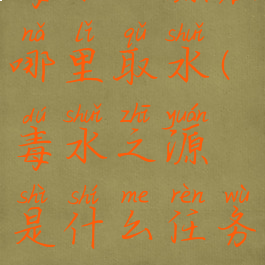 nǎ lǐ qǔ shuǐ
哪里取水(
dú shuǐ zhī yuán
毒水之源
shì shé me rèn wù
是什么任务